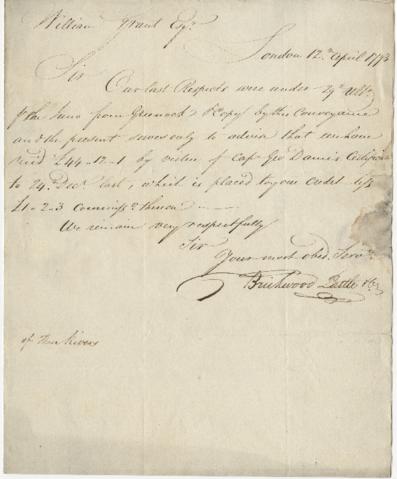 William Grant Esqr.
London 12th April 1793
Sir
Our last Respects were under 29 Ulto.
p the Juno from Greenock & Copy by this Conveyance
and the present serves only to advise that we have
recd. £44-12-1 by virtue of Capt Geo Dame's Certificate
to 24. Decr. last, which is placed to your credit less
£1-2-3 Commisss. thereon
We remain very respectfully
Sir
Your most obed. Servts.
Brickwood Pattle & Co.
of Three Rivers